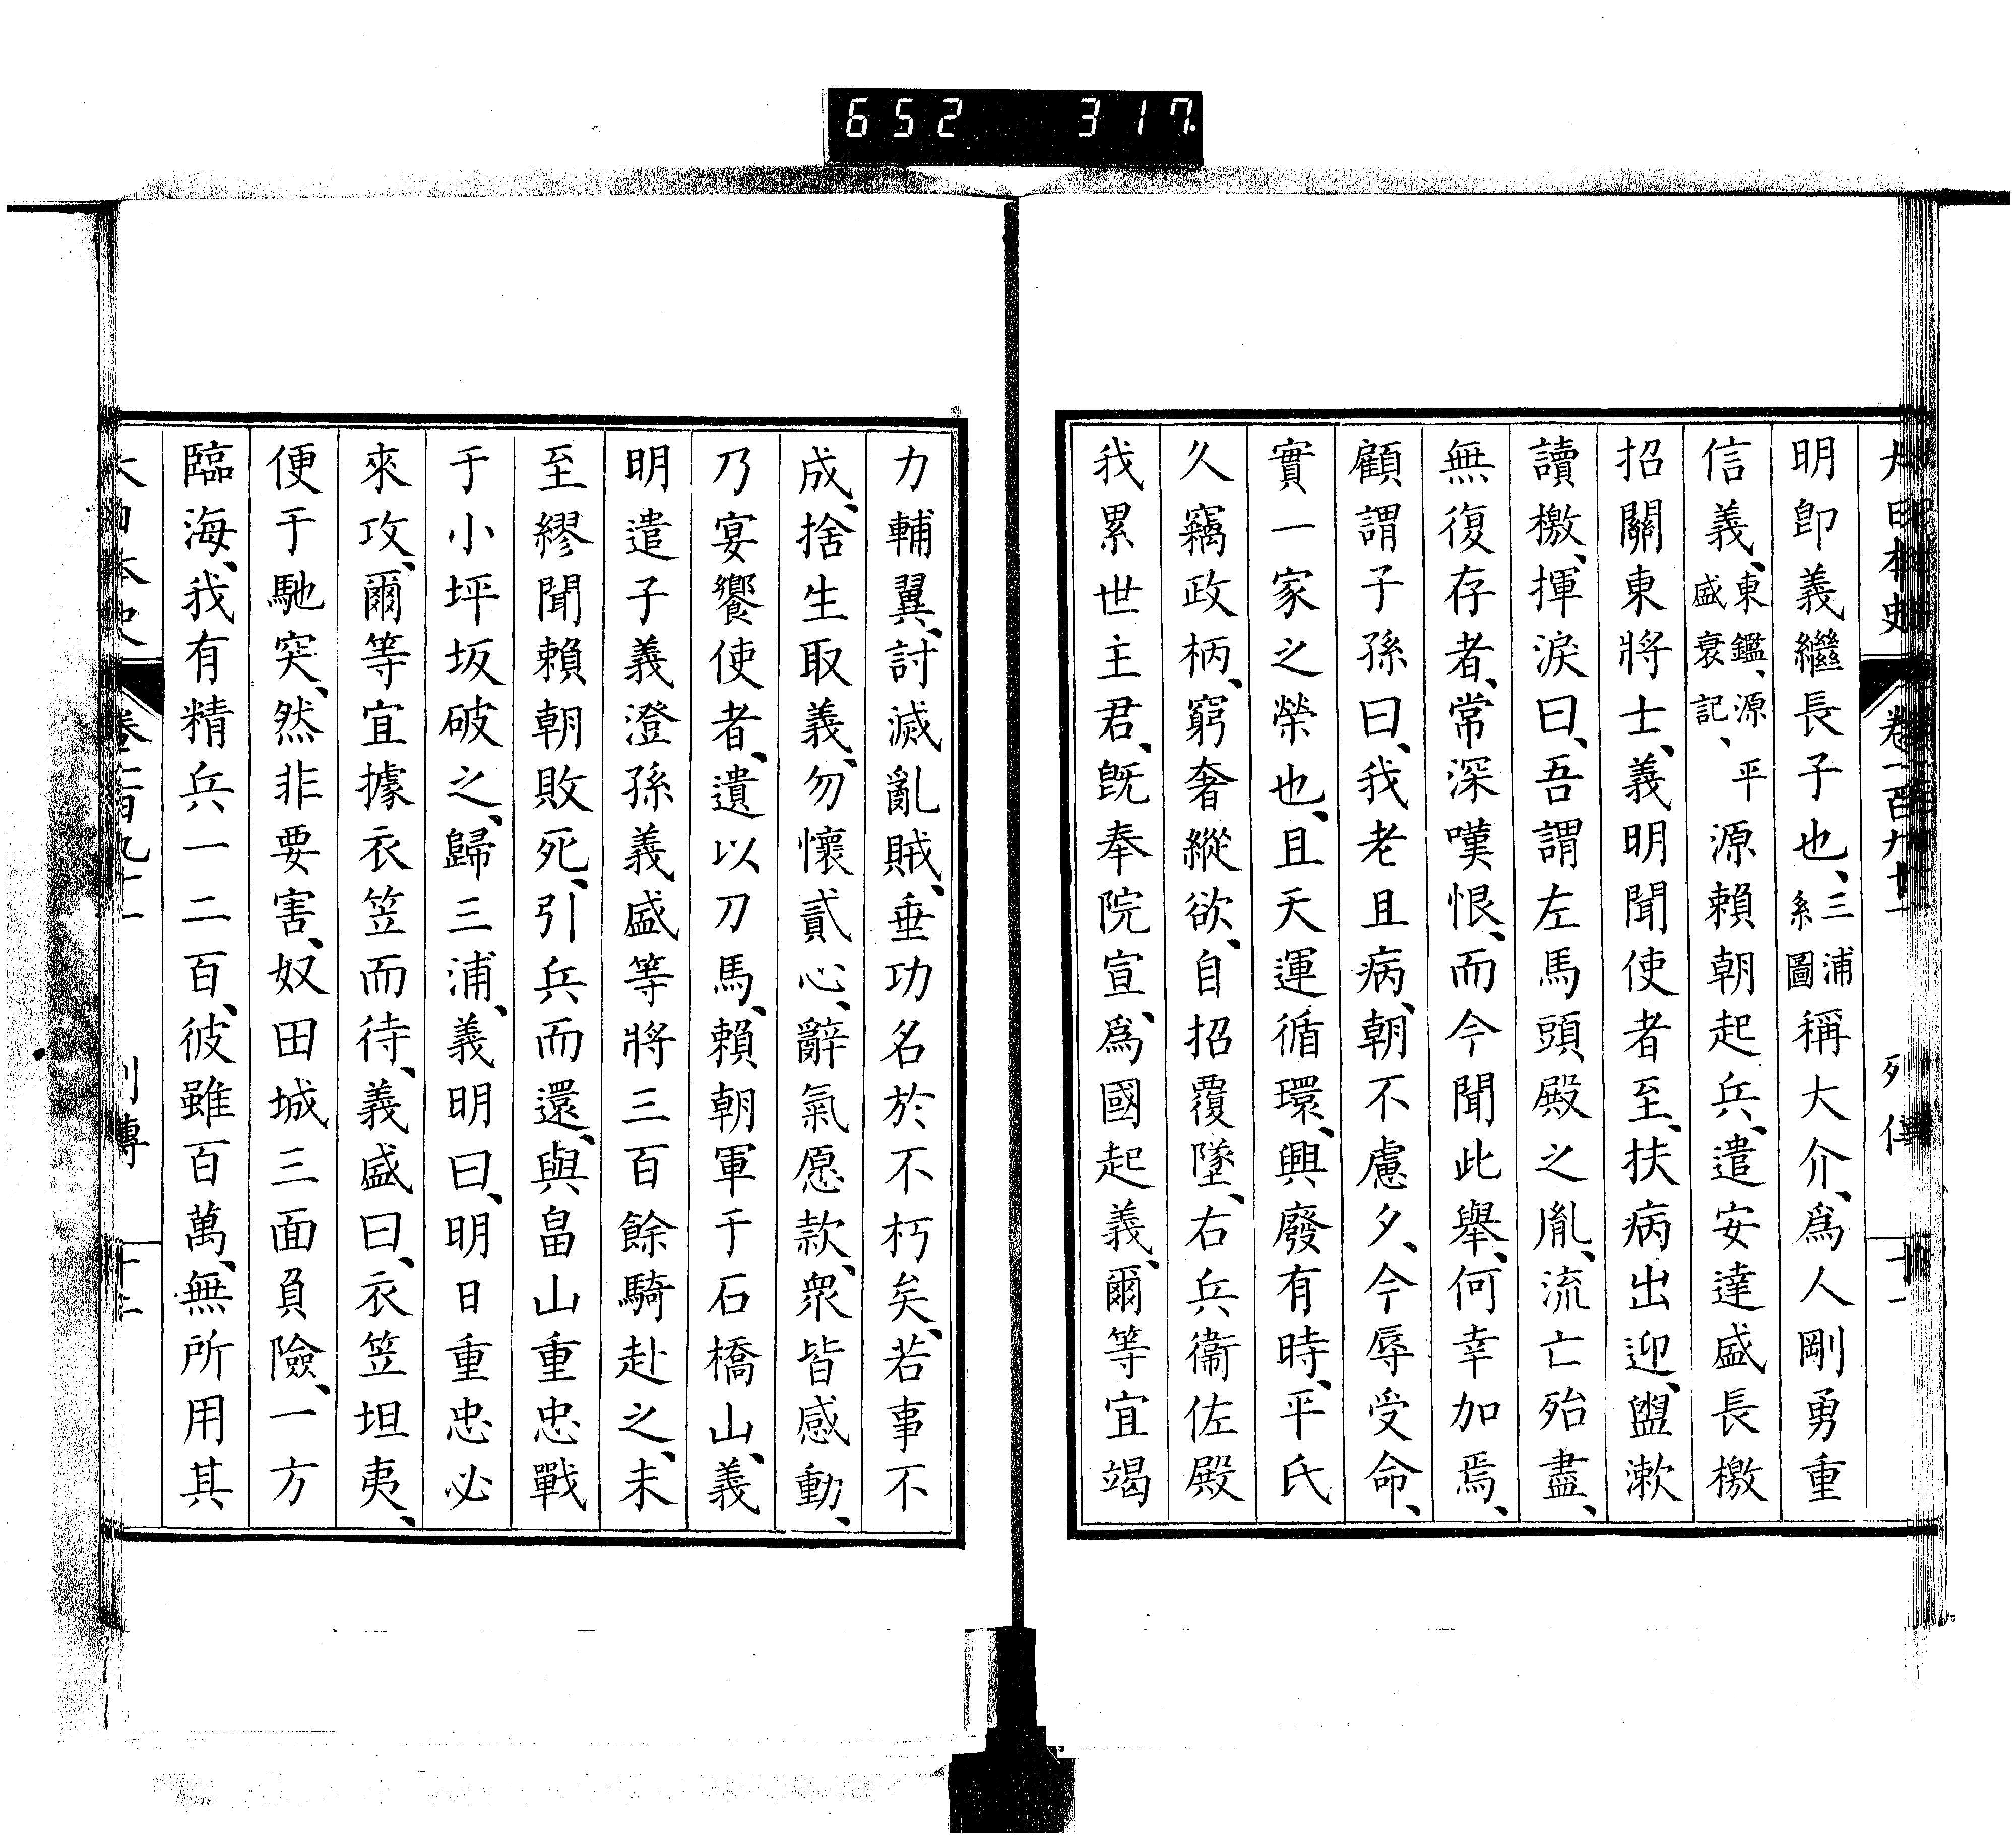 652 317
大日本史 卷一百九十一 列傳 十一
明卽義繼長子也、三浦系圖稱大介、爲人剛勇重
信義、東鑑、源平盛衰記、源賴朝起兵、遣安達盛長檄
招關東將士、義明聞使者至、扶病出迎、盥漱
讀檄、揮淚曰、吾謂左馬頭殿之胤、流亡殆盡、
無復存者、常深嘆恨、而今聞此舉、何幸加焉、
顧謂子孫曰、我老且病、朝不慮夕、今辱受命、
實一家之榮也、且天運循環、興廢有時、平氏
久竊政柄、窮奢縱欲、自招覆墜、右兵衞佐殿
我累世主君、旣奉院宣、爲國起義、爾等宜竭
力輔翼、討滅亂賊、垂功名於不朽矣、若事不
成、捨生取義、勿懷貳心、辭氣愿款、衆皆感動、
乃宴饗使者、遺以刀馬、賴朝軍于石橋山、義
明遣子義澄孫義盛等將三百餘騎赴之、未
至繆聞賴朝敗死、引兵而還、與畠山重忠戰
于小坪坂破之、歸三浦、義明曰、明日重忠必
來攻、爾等宜據衣笠而待、義盛曰、衣笠坦夷、
便于馳突、然非要害、奴田城三面負險、一方
臨海、我有精兵一二百、彼雖百萬、無所用其
大日本史 卷一百九十一 列傳